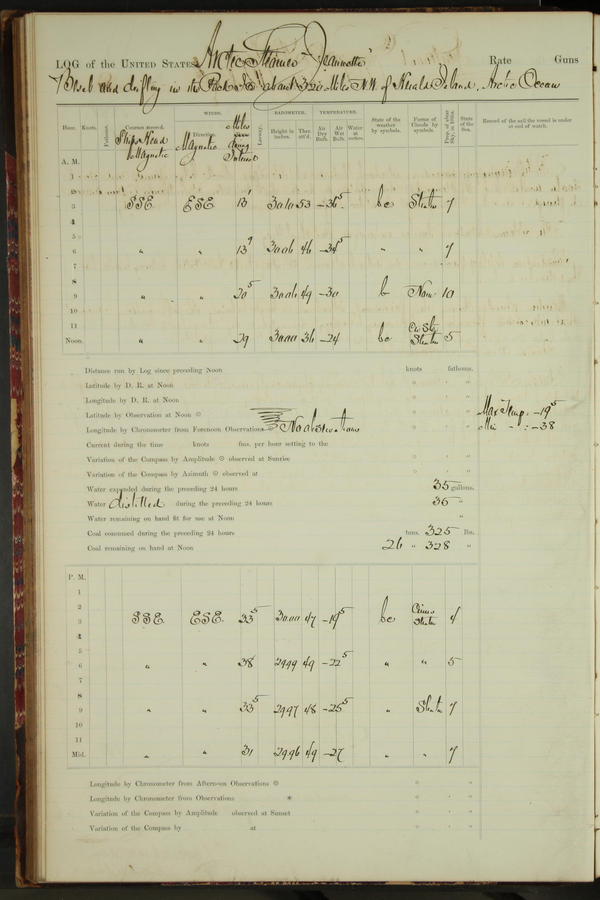 LOG of the UNITED STATES Arctic Steamer "Jeannette" Rate Guns
Beset and drifting in the Pack Ice about 320 Miles NW of Herald Island, Arctic Ocean
Hour. Knots. Fathoms. Courses steered. Ships Head Magnetic WINDS. Direction. Magnetic Miles during Interval Leeway. BAROMETER. Height in inches. Ther. att'd. TEMPERATURE. Air Dry Bulb. Air Wet Bulb. Water at surface. State of the weather by symbols. Forms of Clouds by symbols. Prop. of clear Sky, in 10ths. State of the Sea. Record of the sail the vessel is under at end of watch.
A. M.
1
2
3 SSE ESE 13 30.10 53 -36.5 bc Stratus 7
4
5
6 " " 13 30.06 46 -34.5 " " 7
8
9 " " 20.5 30.06 49 -30 b None 10
10
11
Noon. " " 29 30.00 36 -24 bc Cir St. Stratus 5
Distance run by Log since preceding Noon knots fathoms.
Latitude by D. R. at Noon
Longitude by D. R. at Noon
Latitude by Observation at Noon
Max Temp. -19.5
Longitude by Chronometer from Forenoon Observations No observations
Min " : -38
Current during the time knots fms. per hour setting to the
Variation of the Compass by Amplitude observed at Sunrise
Variation of the Compass by Azimuth observed at
Water expended during the preceding 24 hours 35 gallons.
Water distilled during the preceding 24 hours 36 "
Water remaining on hand fit for use at Noon "
Coal consumed during the preceding 24 hours tons. 325 lbs.
Coal remaining on hand at Noon 26 " 328 "
P. M.
1
2
3 SSE ESE 33.5 30.00 47 -19.5 bc Cirrus Stratus 4
4
5
6 " " 38 29.99 49 -22.5 " " 5
8
9 " " 33.5 29.97 48 -25.5 " Stratus 7
10
11
Mid. " " 31 29.96 49 -27 " " 7
Longitude by Chronometer from Afternoon Observations
Longitude by Chronometer from Observations *
Variation of the Compass by Amplitude observed at Sunset
Variation of the Compass by at